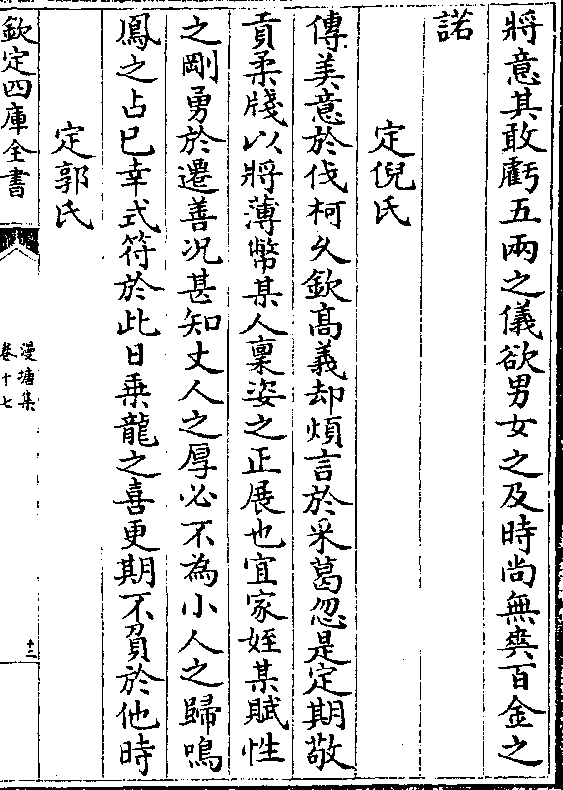 將意其敢虧五兩之儀欲男女之及時尚無爽百金之
諾
定倪氏
傳美意於伐柯久欽髙義却煩言於采葛忽是定期敬
貢柔牋以將薄幣某人稟姿之正展也宜家姪某賦性
之剛勇於遷善况甚知丈人之厚必不為小人之歸鳴
鳳之占已幸式符於此日乗龍之喜更期不負於他時
定郭氏
欽定四庫全書
漫塘集
卷十七
十三